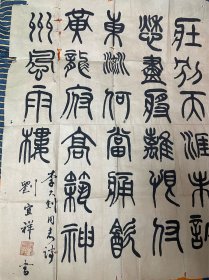 壯別天涯未許
愁盡將離恨付
東流何當痛飲
黃龍府高築神
州風雨樓
李大釗同志詩
劉宜祥書